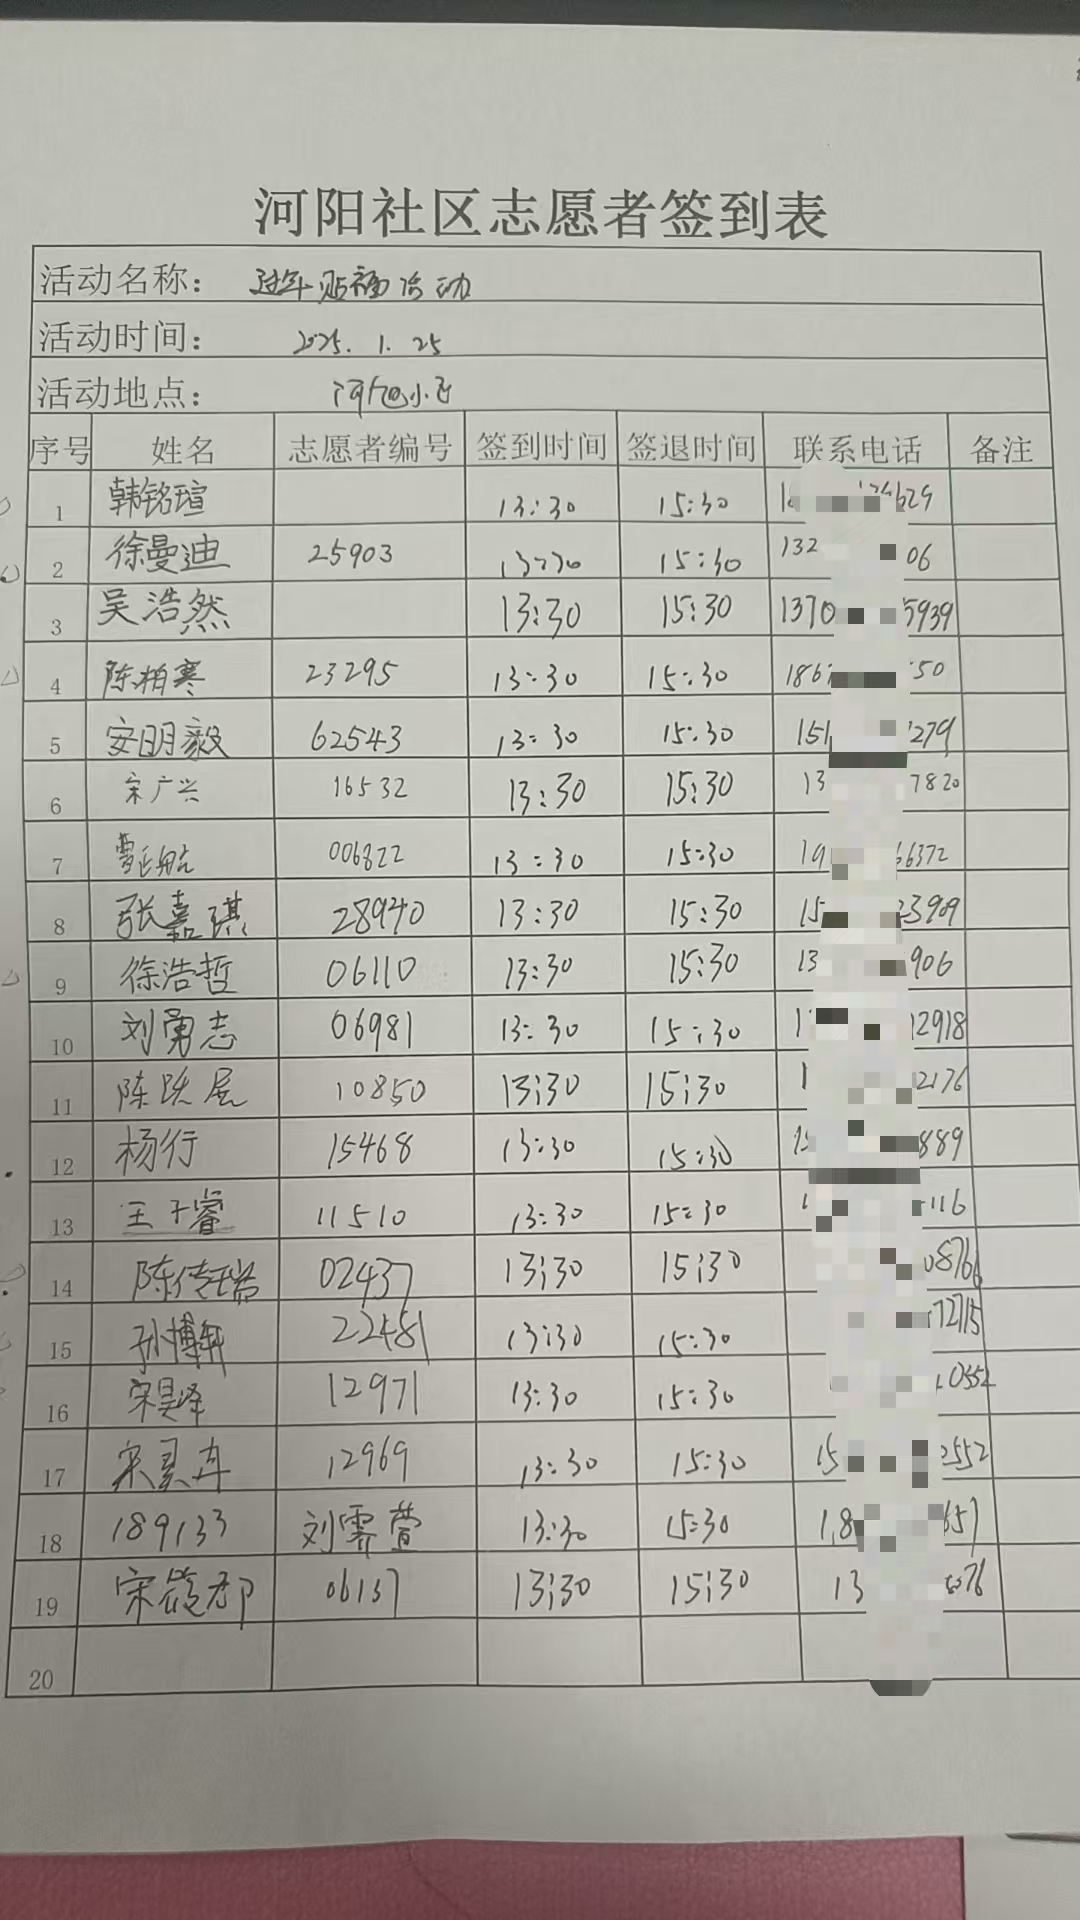 河阳社区志愿者签到表
活动名称： 过年贴福活动
活动时间： 2025. 1. 25
活动地点： 河旭小区
序号 姓名 志愿者编号 签到时间 签退时间 联系电话 备注
1 韩铭瑄 13:30 15:30 629
2 徐曼迪 25903 13:30 15:30 132 06
3 吴浩然 13:30 15:30 1370 5939
4 陈柏寒 23295 13:30 15:30 186 50
5 安明毅 62543 13:30 15:30 151 279
6 宋广兴 16532 13:30 15:30 13 7820
7 航 006822 13:30 15:30 19 66372
8 张嘉琪 28940 13:30 15:30 15 23909
9 徐浩哲 06110 13:30 15:30 13 906
10 刘勇志 06981 13:30 15:30 1 12918
11 陈跃展 10850 13:30 15:30 1 2176
12 杨行 15468 13:30 15:30 15 889
13 王子睿 11510 13:30 15:30 116
14 陈传瑞 02437 13:30 15:30 08766
15 孙博轩 22481 13:30 15:30 72715
16 宋昊泽 12971 13:30 15:30 0552
17 宋 12969 13:30 15:30 15 0552
18 189133 刘霁萱 13:30 15:30 18 651
19 宋筱郡 06137 13:30 15:30 13 76
20